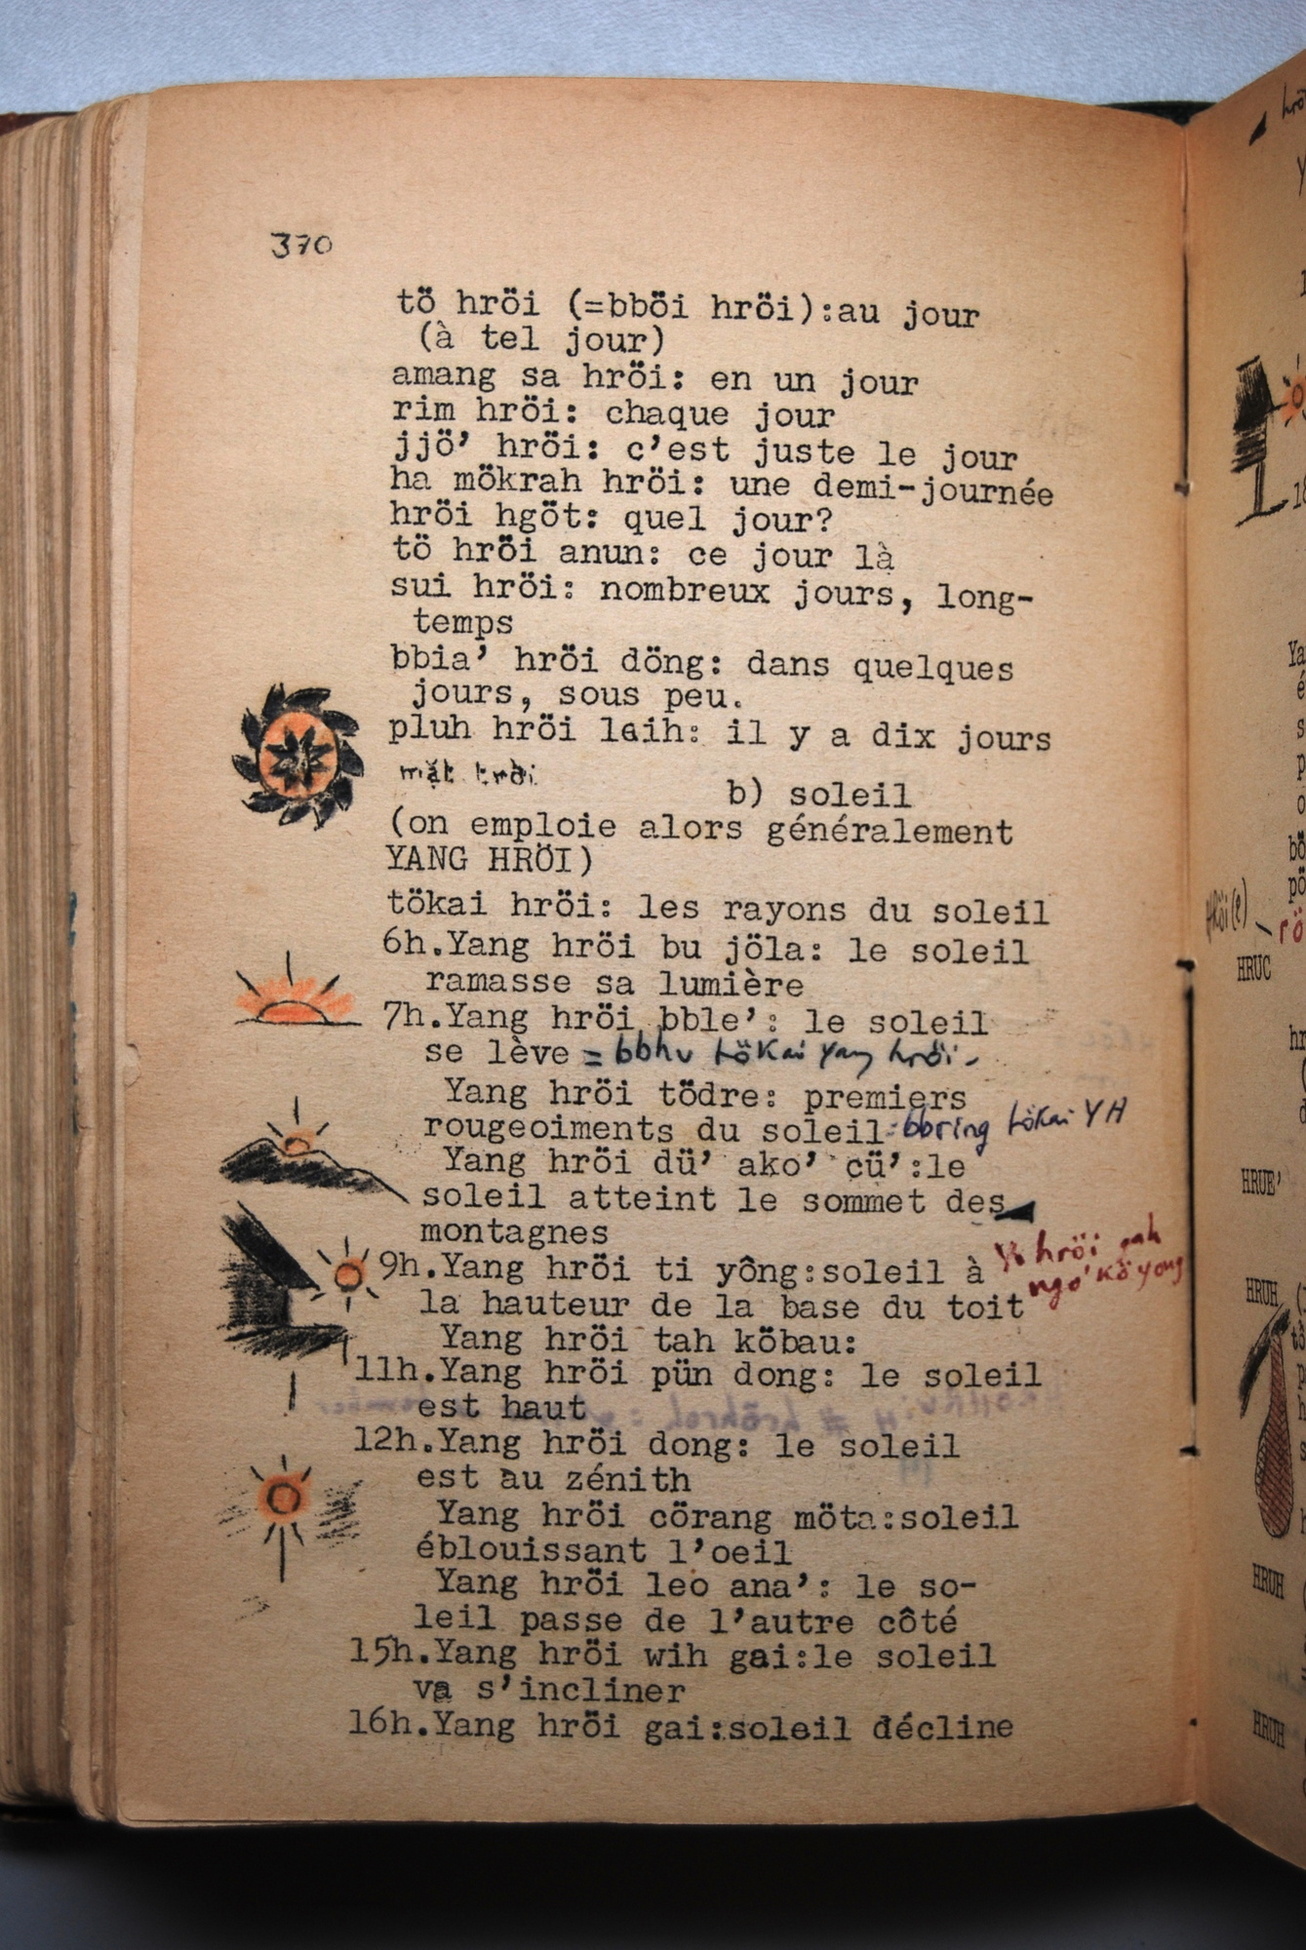 370
tö hröi (=bböi hröi):au jour
(à tel jour)
amang sa hröi: en un jour
rim hröi: chaque jour
jjö’ hröi: c’est juste le jour
ha mökrah hröi: une demi-journée
hröi hgöt: quel jour?
tö hröi anun: ce jour là
sui hröi: nombreux jours, long-
temps
bbia’ hröi döng: dans quelques
jours, sous peu.
pluh hröi laih: il y a dix jours
mặt trời
b) soleil
(on emploie alors généralement
YANG HRÖI)
tökai hröi: les rayons du soleil
6h.Yang hröi bu jöla: le soleil
ramasse sa lumière
7h.Yang hröi bble’: le soleil
se lève = bbhu tökai yang hröi-
Yang hröi tödre: premiers
rougeoiments du soleil=bbring tökai YH
Yang hröi dü’ ako’ cü’:le
soleil atteint le sommet des
montagnes
9h.Yang hröi ti yông:soleil à
hröi
ngo’ kö yong
la hauteur de la base du toit
Yang hröi tah köbau:
11h.Yang hröi pün dong: le soleil
est haut
12h.Yang hröi dong: le soleil
est au zénith
Yang hröi cörang möta:soleil
éblouissant l’oeil
Yang hröi leo ana’: le so-
leil passe de l’autre côté
15h.Yang hröi wih gai:le soleil
va s’incliner
16h.Yang hröi gai:soleil décline
HRUC
HRUE’
HRUH
HRUH
HRUH